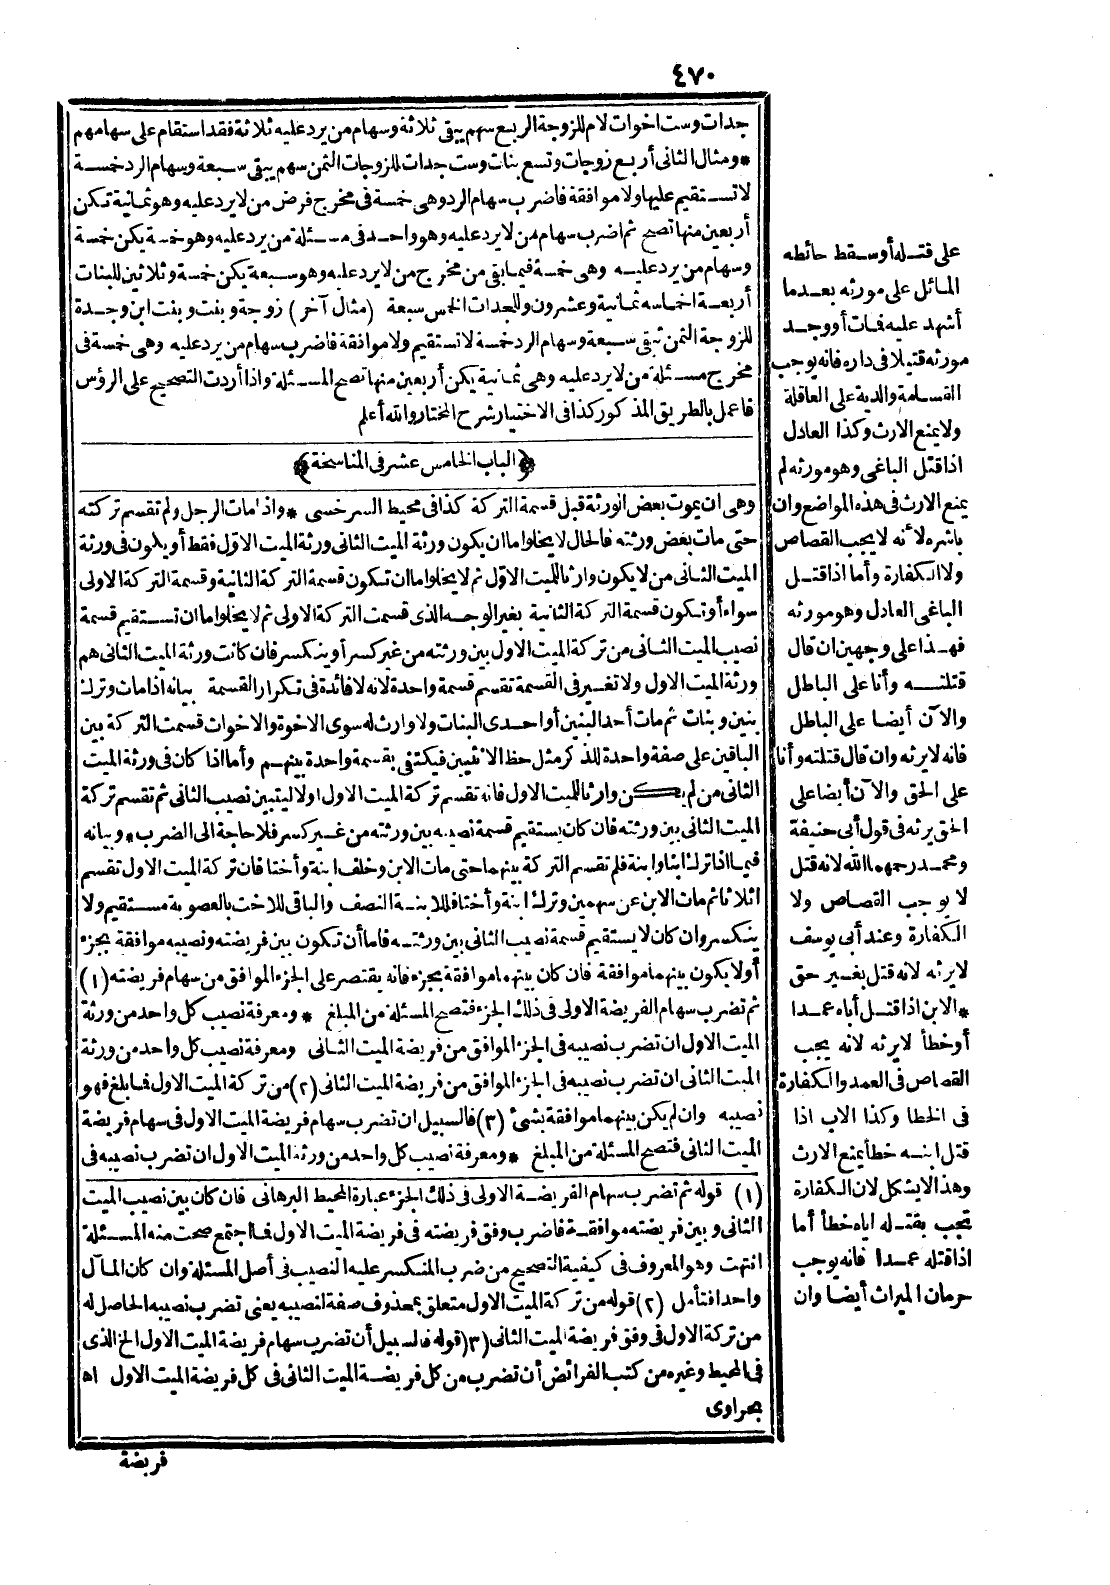 ٤٧٠
جدات وست اخوات لام للزوجة الربع سهم يبقى ثلاثة وسهام من يرد عليه ثلاثة فقد استقام على سهامهم
* ومثال الثانى أربع زوجات وتسع بنات وست جدات للزوجات الثمن سهم يبقى سبعة وسهام الرد خمسة
لا تستقيم عليها ولا موافقة فاضرب سهام الرد وهى خمسة فى مخرج فرض من لا يرد عليه وهو ثمانية تكن
أربعين منها تصح ثم اضرب سهام من لا يرد عليه وهو واحد فى مسئلة من يرد عليه وهو خمسة يكن خمسة
وسهام من يرد عليه وهى خمسة فيما بقى من مخرج من لا يرد عليه وهو سبعة يكن خمسة وثلاثين للبنات
أربعة اخماسه ثمانية وعشرون وللجدات الخمس سبعة (مثال آخر) زوجة وبنت وبنت ابن وجدة
للزوجة الثمن تبقى سبعة وسهام الرد خمسة لا تستقيم ولا موافقة فاضرب سهام من يرد عليه وهى خمسة فى
مخرج مسئلة من لا يرد عليه وهى ثمانية يكن أربعين منها تصح المسئلة واذا أردت التصحيح على الرؤس
فاعمل بالطريق المذكور كذا فى الاختيار شرح المختار والله أعلم
﴿الباب الخامس عشر فى المناسخة﴾
وهى ان يموت بعض الورثة قبل قسمة التركة كذا فى محيط السرخسى * واذا مات الرجل ولم تقسم تركته
حتى مات بعض ورثته فالحال لا يخلو اما ان يكون ورثة الميت الثانى ورثة الميت الاول فقط أو يكون فى ورثة
الميت الثانى من لا يكون وارثا للميت الاوّل ثم لا يخلو اما ان تكون قسمة التركة الثانية وقسمة التركة الاولى
سواء أو تكون قسمة التركة الثانية بغير الوجه الذى قسمت التركة الاولى ثم لا يخلو اما ان تستقيم قسمة
نصيب الميت الثانى من تركة الميت الاول بين ورثته من غير كسر أو ينكسر فان كانت ورثة الميت الثانى هم
ورثة الميت الاول ولا تغير فى القسمة تقسم قسمة واحدة لانه لا فائدة فى تكرار القسمة بيانه اذا مات وترك
بنين وبنات ثم مات أحد البنين أو احدى البنات ولا وارث له سوى الاخوة والاخوات قسمت التركة بين
الباقين على صفة واحدة للذكر مثل حظ الانثيين فيكتفى بقسمة واحدة بينهم وأما اذا كان فى ورثة الميت
الثانى من لم يكن وارثا للميت الاول فانه تقسم تركة الميت الاول اولا ليتبين نصيب الثانى ثم تقسم تركة
الميت الثانى بين ورثته فان كان يستقيم قسمة نصيبه بين ورثته من غير كسر فلا حاجة الى الضرب * وبيانه
فيما اذا ترك ابنا وابنة فلم تقسم التركة بينهما حتى مات الابن وخلف ابنة وأختا فان تركة الميت الاول تقسم
اثلاثا ثم مات الابن عن سهمين وترك ابنة وأختا فللابنة النصف والباقى للاخت بالعصوبة مستقيم ولا
ينكسر وان كان لا يستقيم قسمة نصيب الثانى بين ورثته فاما أن تكون بين فريضته ونصيبه موافقة بجزء
أو لا يكون بينهما موافقة فان كان بينهما موافقة بجزء فانه يقتصر على الجزء الموافق من سهام فريضته (١)
ثم تضرب سهام الفريضة الاولى فى ذلك الجزء فتصح المسئلة من المبلغ * ومعرفة نصيب كل واحد من ورثة
الميت الاول ان تضرب نصيبه فى الجزء الموافق من فريضة الميت الثانى ومعرفة نصيب كل واحد من ورثة
الميت الثانى ان تضرب نصيبه فى الجزء الموافق من فريضة الميت الثانى (٢) من تركة الميت الاول فما بلغ فهو
نصيبه وان لم يكن بينهما موافقة بشئ (٣) فالسبيل ان تضرب سهام فريضة الميت الاول فى سهام فريضة
الميت الثانى فتصح المسئلة من المبلغ * ومعرفة نصيب كل واحد من ورثة الميت الاول ان تضرب نصيبه فى
(١) قوله ثم تضرب سهام الفريضة الاولى فى ذلك الجزء عبارة المحيط البرهانى فان كان بين نصيب الميت
الثانى وبين فريضته موافقة فاضرب وفق فريضته فى فريضة الميت الاول فما اجتمع صحت منه المسئلة
انتهت وهو المعروف فى كيفية التصحيح من ضرب المنكسر عليه النصيب فى أصل المسئلة وان كان المآل
واحدا فتأمل (٢) قوله من تركة الميت الاول متعلق بمحذوف صفة لنصيبه يعنى تضرب نصيبه الحاصل له
من تركة الاول فى وفق فريضة الميت الثانى (٣) قوله فالسبيل أن تضرب سهام فريضة الميت الاول الخ الذى
فى المحيط وغيره من كتب الفرائض أن تضرب من كل فريضة الميت الثانى فى كل فريضة الميت الاول اه
بحراوى
فريضة
على قتله أو سقط حائطه
المائل على مورثه بعدما
أشهد عليه فمات أو وجد
مورثه قتيلا فى داره فانه يوجب
القسامة والدية على العاقلة
ولا يمنع الارث وكذا العادل
اذا قتل الباغى وهو مورثه لم
يمنع الارث فى هذه المواضع وان
باشره لأنه لا يجب القصاص
ولا الكفارة وأما اذا قتل
الباغى العادل وهو مورثه
فهذا على وجهين ان قال
قتلته وأنا على الباطل
والآن أيضا على الباطل
فانه لا يرثه وان قال قتلته وأنا
على الحق والآن أيضا على
الحق يرثه فى قول أبى حنيفة
ومحمد رحمهما الله لانه قتل
لا يوجب القصاص ولا
الكفارة وعند أبى يوسف
لا يرثه لانه قتل بغير حق
* الابن اذا قتل أباه عمدا
أو خطأ لا يرثه لانه يجب
القصاص فى العمد والكفارة
فى الخطا وكذا الاب اذا
قتل ابنه خطأ يمنع الارث
وهذا لا يشكل لان الكفارة
تجب بقتله اياه خطأ أما
اذا قتله عمدا فانه يوجب
حرمان الميراث أيضا وان